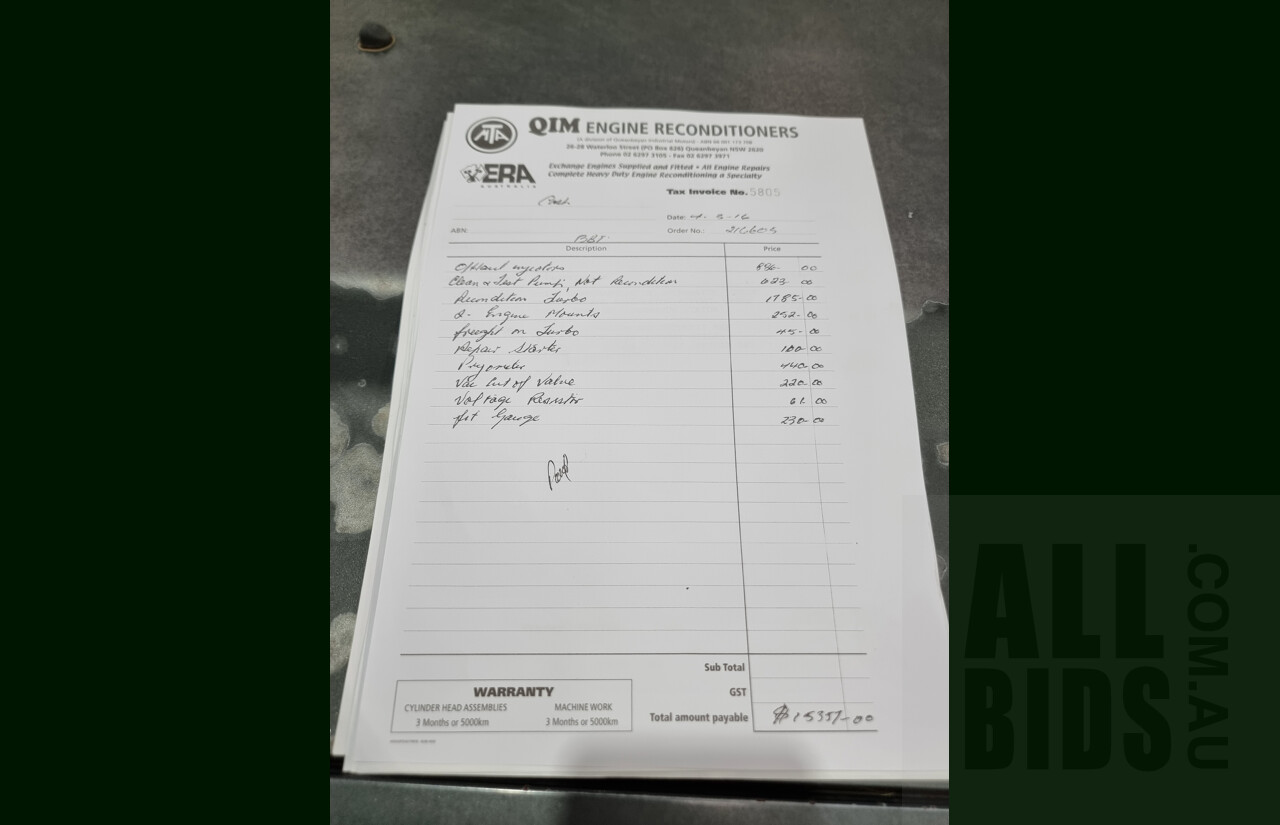 MTA
QIM ENGINE RECONDITIONERS
26-28 Waterloo Street (PO Box 626) Queanbeyan NSW 2620
Phone 02 6297 3105 - Fax 02 6297 3971
ERA
AUSTRALIA
Exchange Engines Supplied and Fitted • All Engine Repairs
Complete Heavy Duty Engine Reconditioning a Specialty
Tax Invoice No. 5805
Date:
ABN:
Order No.:
Description Price
O/Haul injectors 00
Clean & Test Pump, Not Recondition 623 00
Recondition Turbo 1785-00
2- Engine Mounts 252-00
freight on Turbo 45-00
Repair Starter 100-00
Pryometer 440-00
Vac Cut of Valve 220-00
Voltage Resistor 61 00
Gauge 230-00
Paid
Sub Total
GST
Total amount payable $15357-00
WARRANTY
CYLINDER HEAD ASSEMBLIES MACHINE WORK
3 Months or 5000km 3 Months or 5000km
ALL
BIDS
.COM.AU